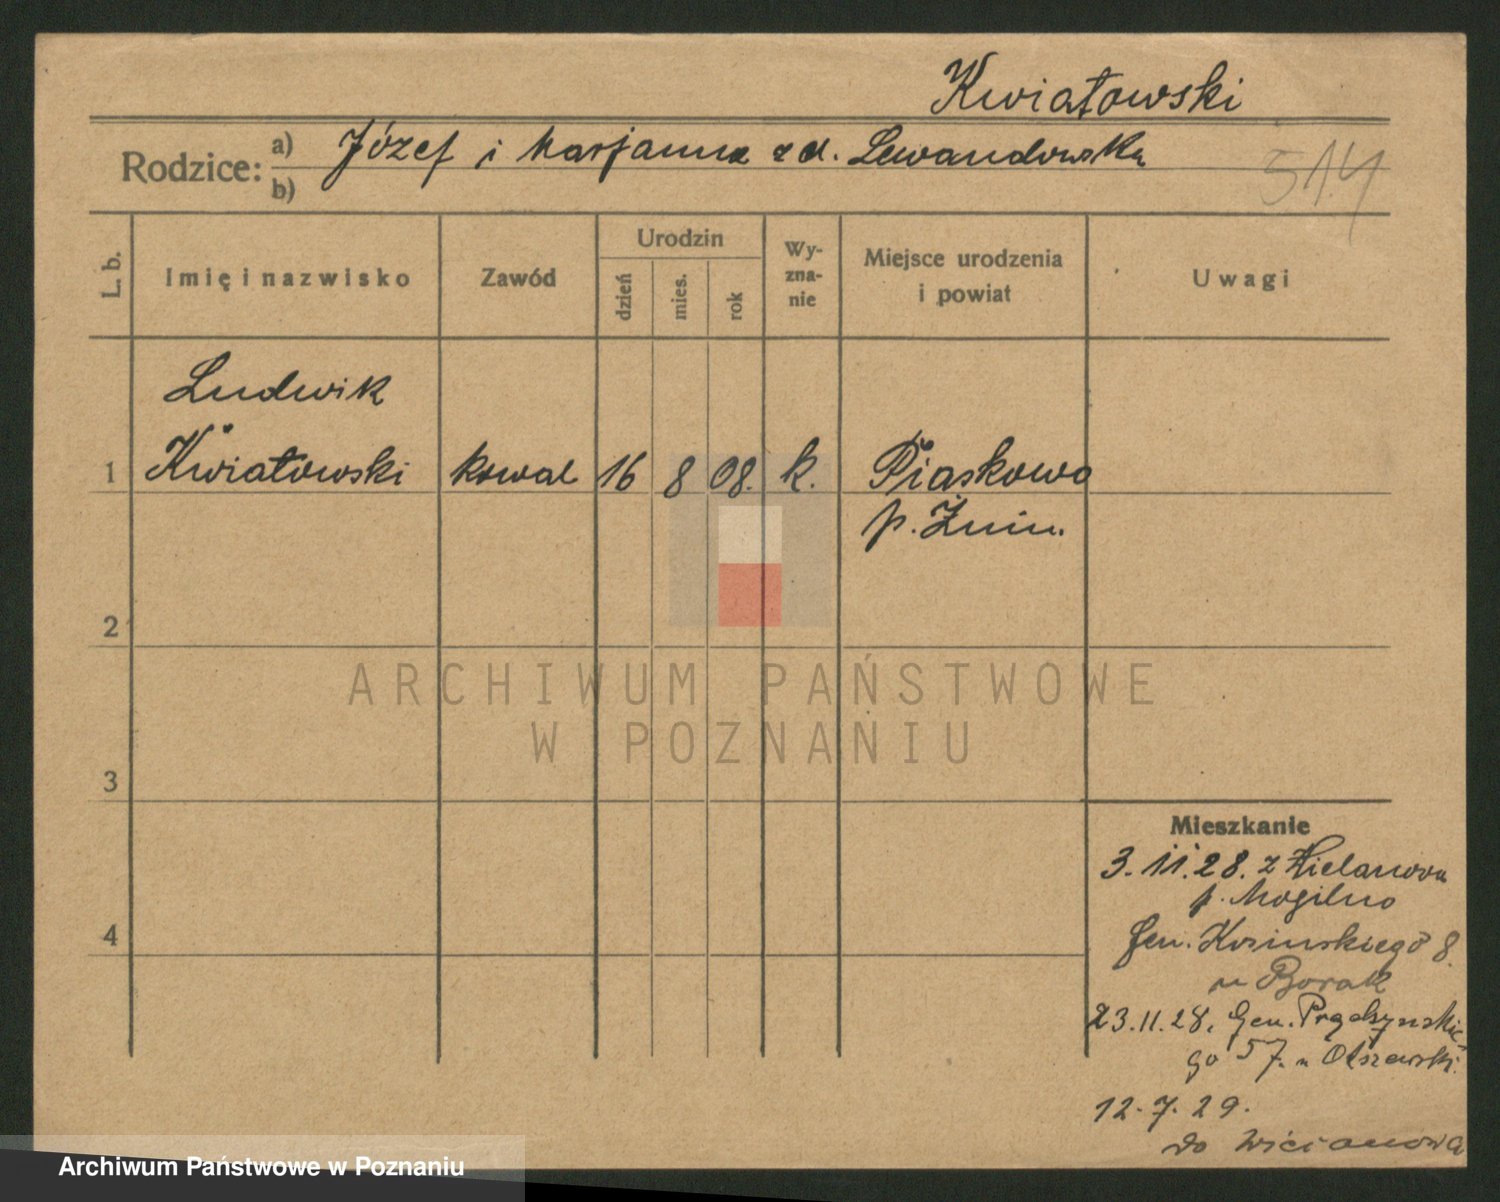 Kwiatowski
Rodzice: a) Józef i Marjanna z d. Lewandowska
b)
514
L. b.
Imię i nazwisko
Zawód
Urodzin
dzień
mies.
rok
Wy-
zna-
nie
Miejsce urodzenia
i powiat
Uwagi
Ludwik
1 Kwiatowski kowal 16 8 08. k. Piaskowo
p. Żnin.
2
3
4
Mieszkanie
3.11.28. z
p. Mogilno
Gen. Kosinskiego 8.
u Borak
23.11.28. Gen. Prądzynskie-
go 57. u Olszewski.
12.7.29.
do
ARCHIWUM PAŃSTWOWE
W POZNANIU
Archiwum Państwowe w Poznaniu